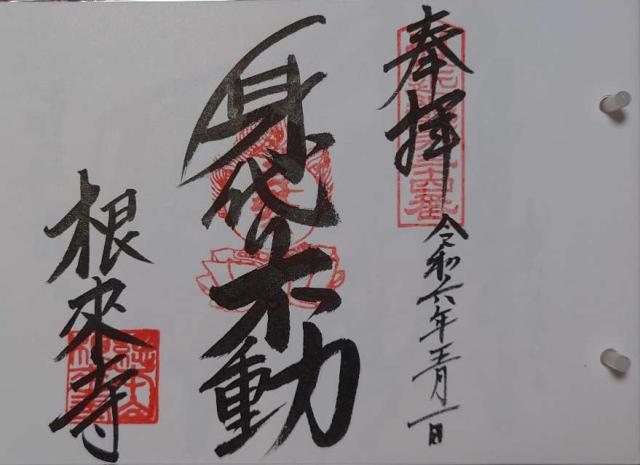 奉拝
令和六年五月一日
身代り不動
根来寺